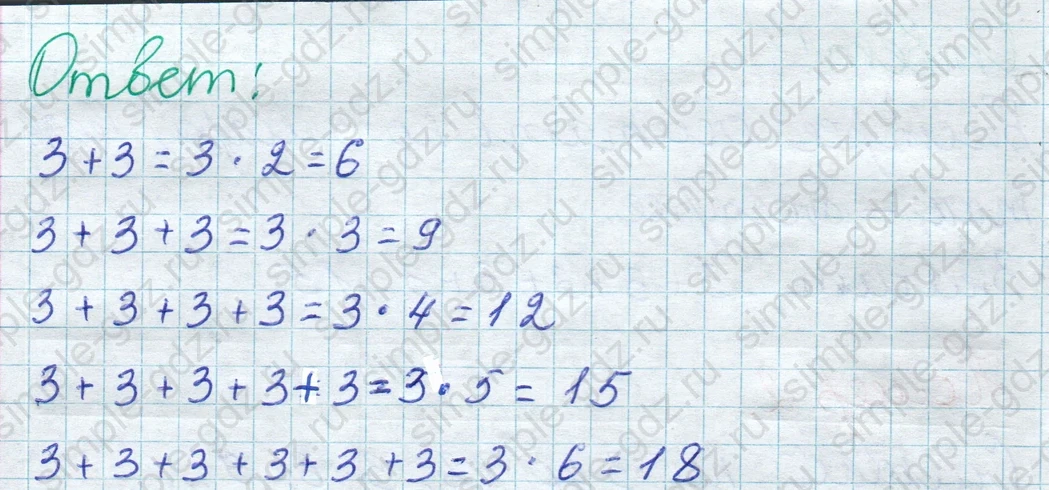 Ответ:
3 + 3 = 3 · 2 = 6
3 + 3 + 3 = 3 · 3 = 9
3 + 3 + 3 + 3 = 3 · 4 = 12
3 + 3 + 3 + 3 + 3 = 3 · 5 = 15
3 + 3 + 3 + 3 + 3 + 3 = 3 · 6 = 18
simple-gdz.ru